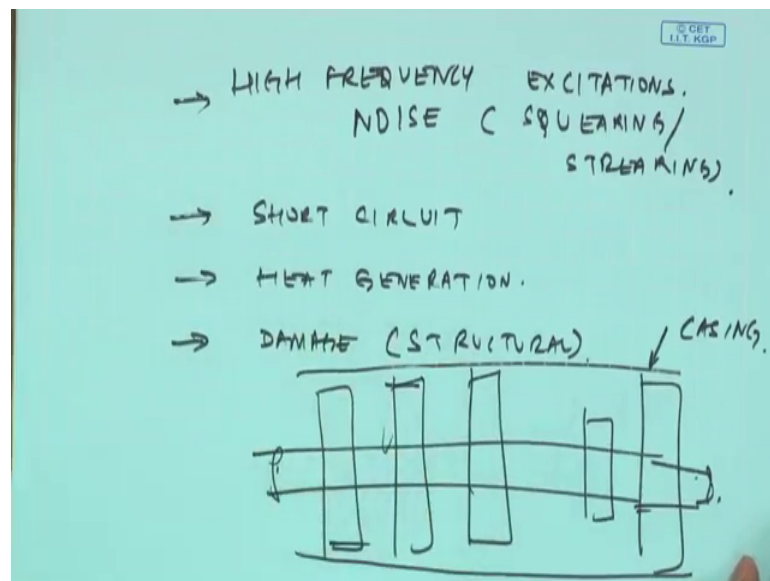 © CET
I.I.T. KGP
→ HIGH FREQUENCY EXCITATIONS.
NOISE ( SQUEAKING/
STREAKING).
→ SHORT CIRCUIT
→ HEAT GENERATION.
→ DAMAGE (STRUCTURAL).
CASING.